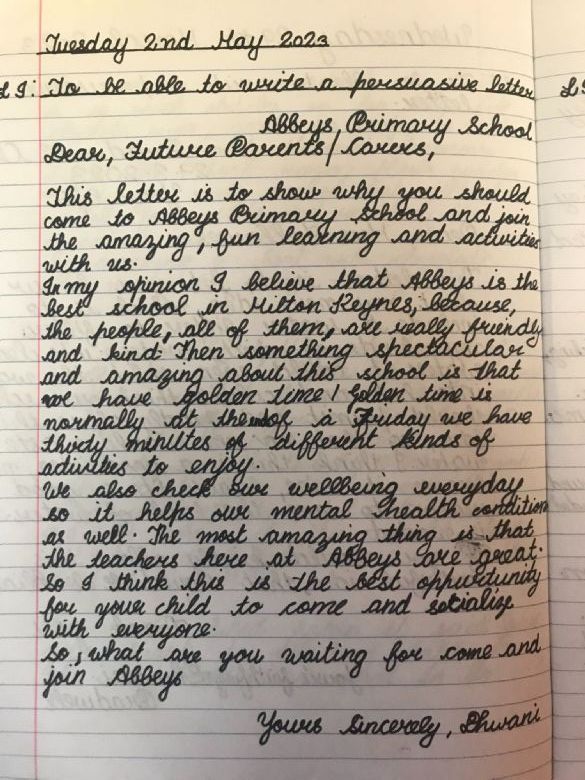 Tuesday 2nd May 2023
L I: To be able to write a persuasive letter
Abbeys, Primary School
Dear, Future Parents/Carers,
This letter is to show why you should
come to Abbeys Primary School and join
the amazing, fun learning and activities
with us.
In my opinion I believe that Abbeys is the
best school in Milton Keynes, because,
the people, all of them, are really friendly
and kind. Then something spectacular
and amazing about this school is that
we have golden time! Golden time is
normally at the end of a Friday we have
thirty minutes of different kinds of
activities to enjoy.
We also check our wellbeing everyday
so it helps our mental health condition
as well. The most amazing thing is that
the teachers here at Abbeys are great.
So I think this is the best oppurtunity
for your child to come and socialize
with everyone.
So, what are you waiting for come and
join Abbeys
Yours Sincerely, Dhwani